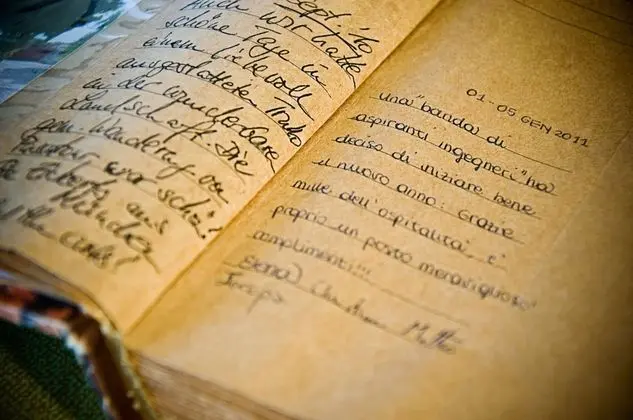 Sept. 10
Auch wir hatte
schöne Tage in
einem liebevoll
ausgestatteten Trullo
in der wunderbare
Landschaft. Die
gem. Wanderung von
war schön!
aus
München
01-05 GEN 2011
una "banda di
aspiranti ingegneri" ha
deciso di iniziare bene
il nuovo anno: grazie
mille dell'ospitalità, è
proprio un posto meraviglioso!
complimenti!!!